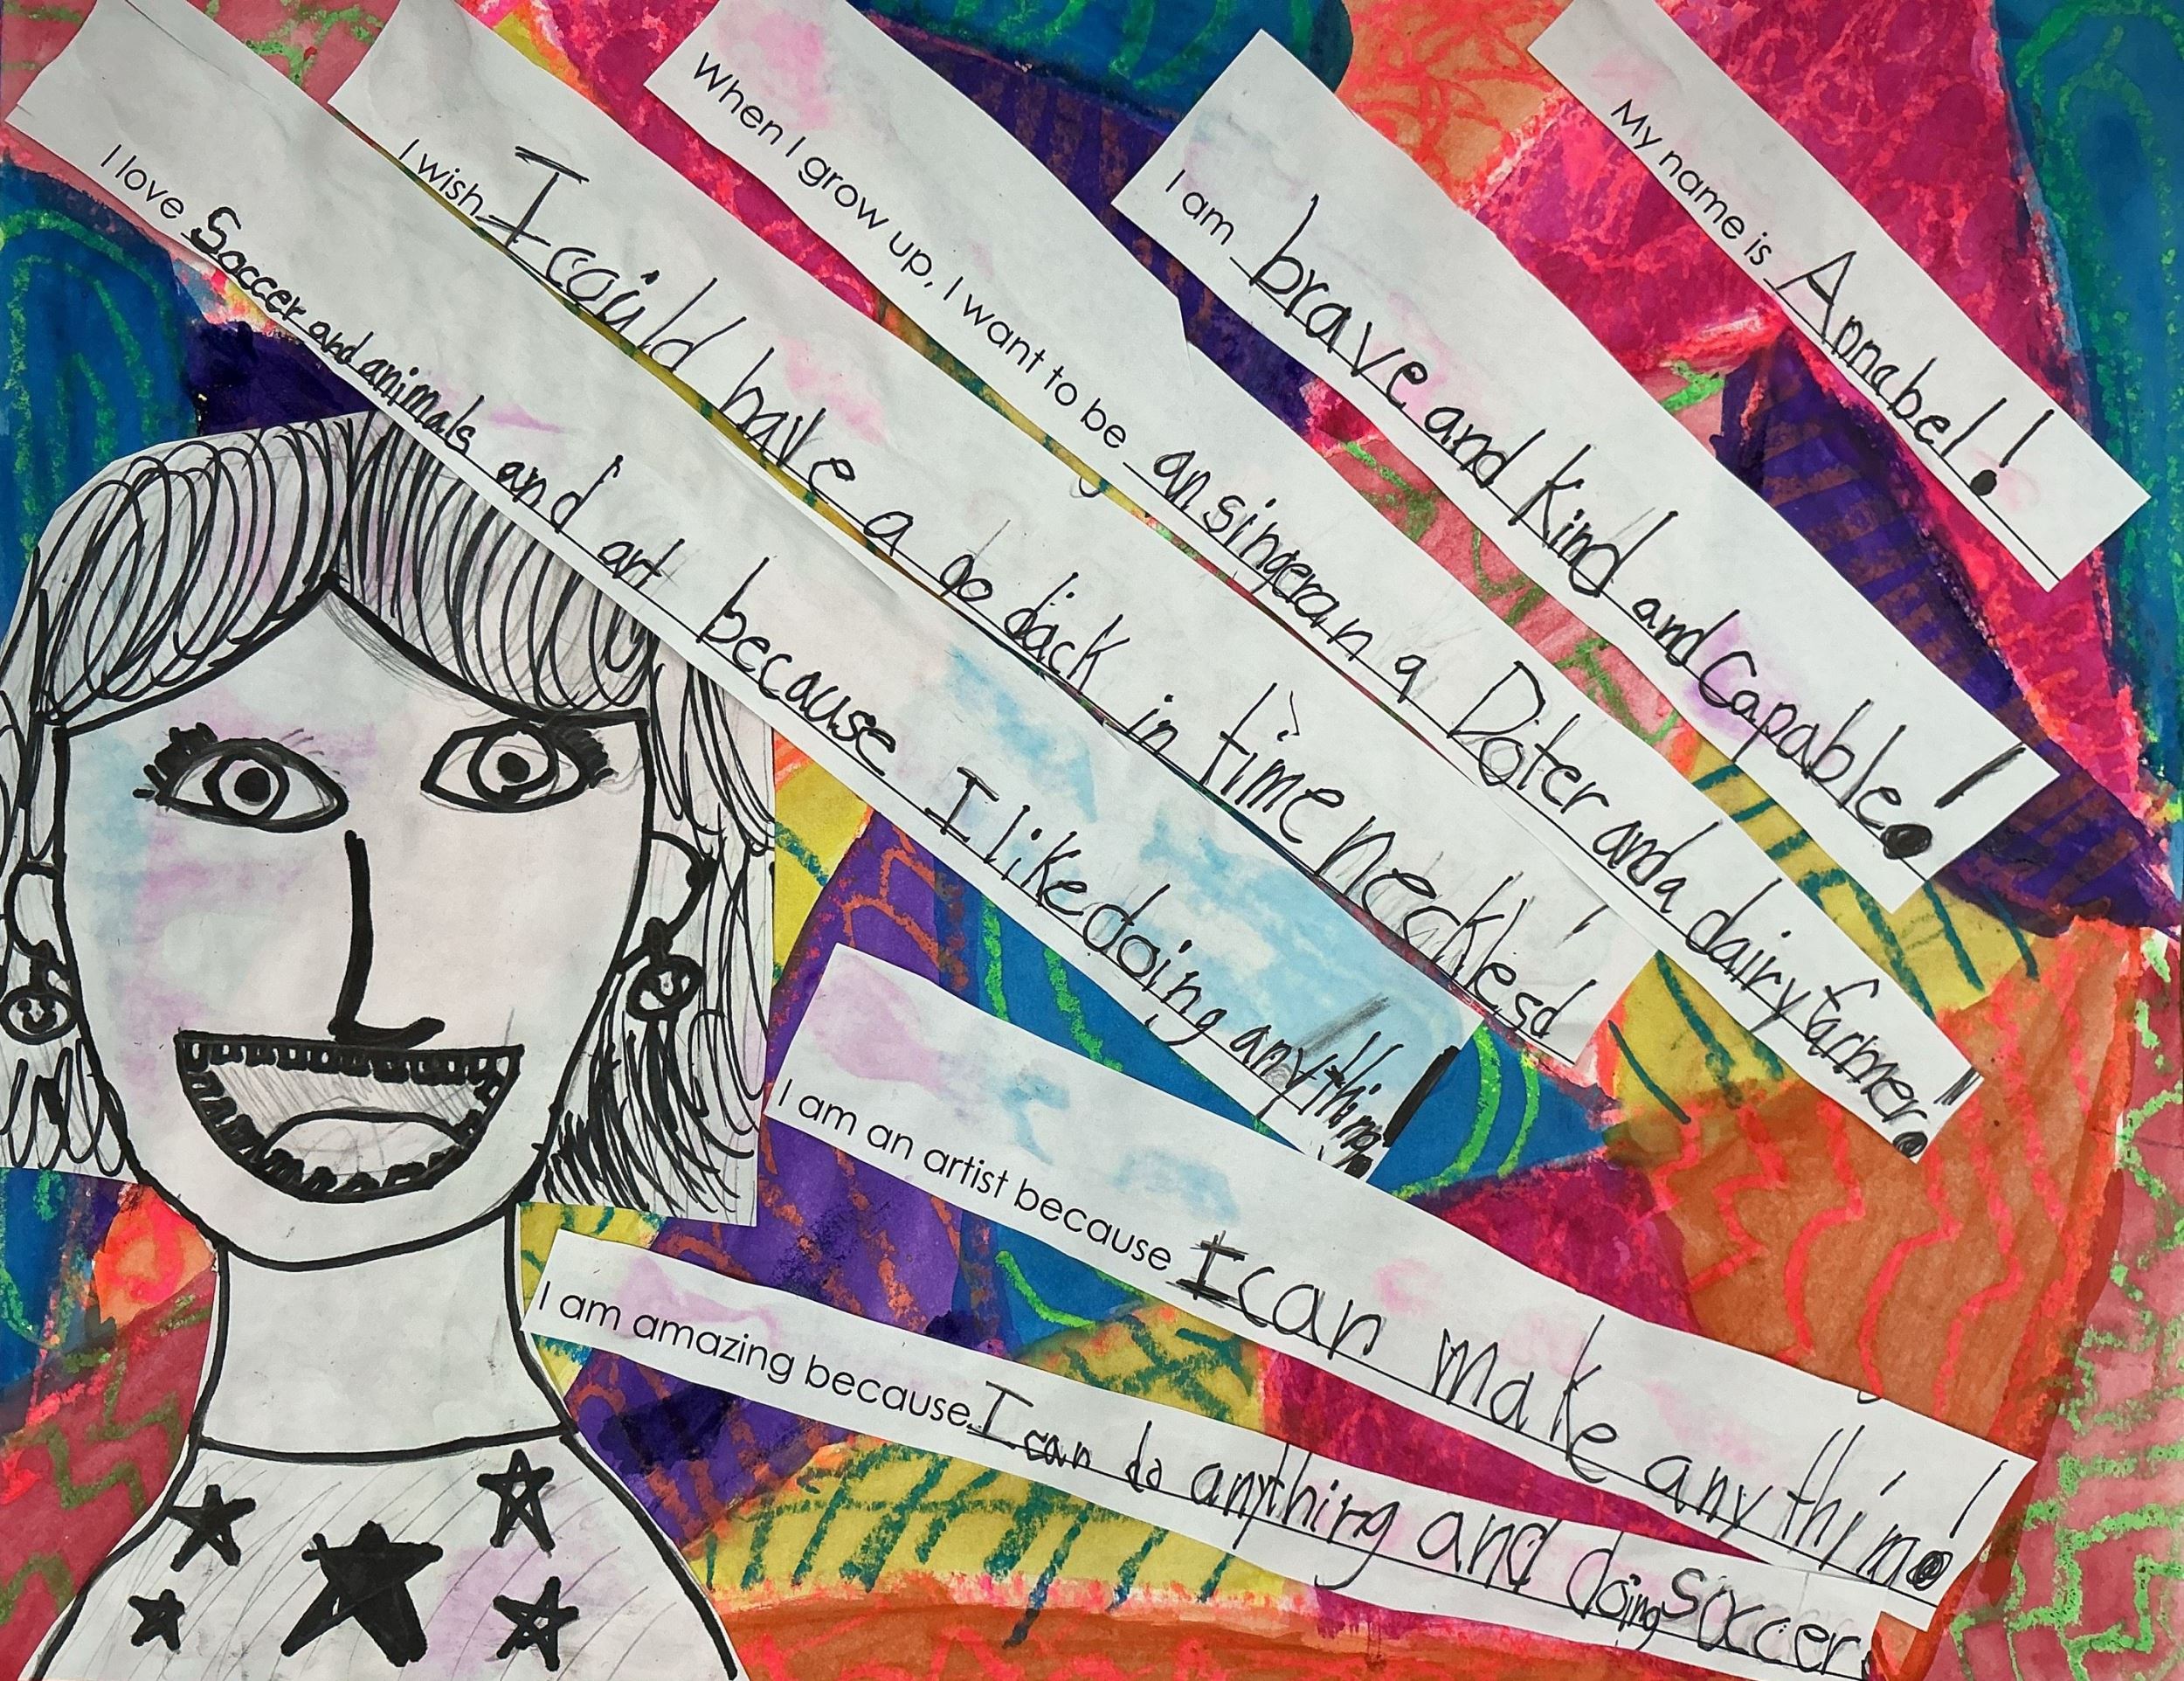 My name is Annabel!
I am brave and kind and Capable!
When I grow up, I want to be an singer an a Doter and a dairy farmer!
I wish I could have a go back in time neckles
I love Soccer and animals and art because I like doing anything!
I am an artist because I can make anything!
I am amazing because I can do anything and doing soccer.